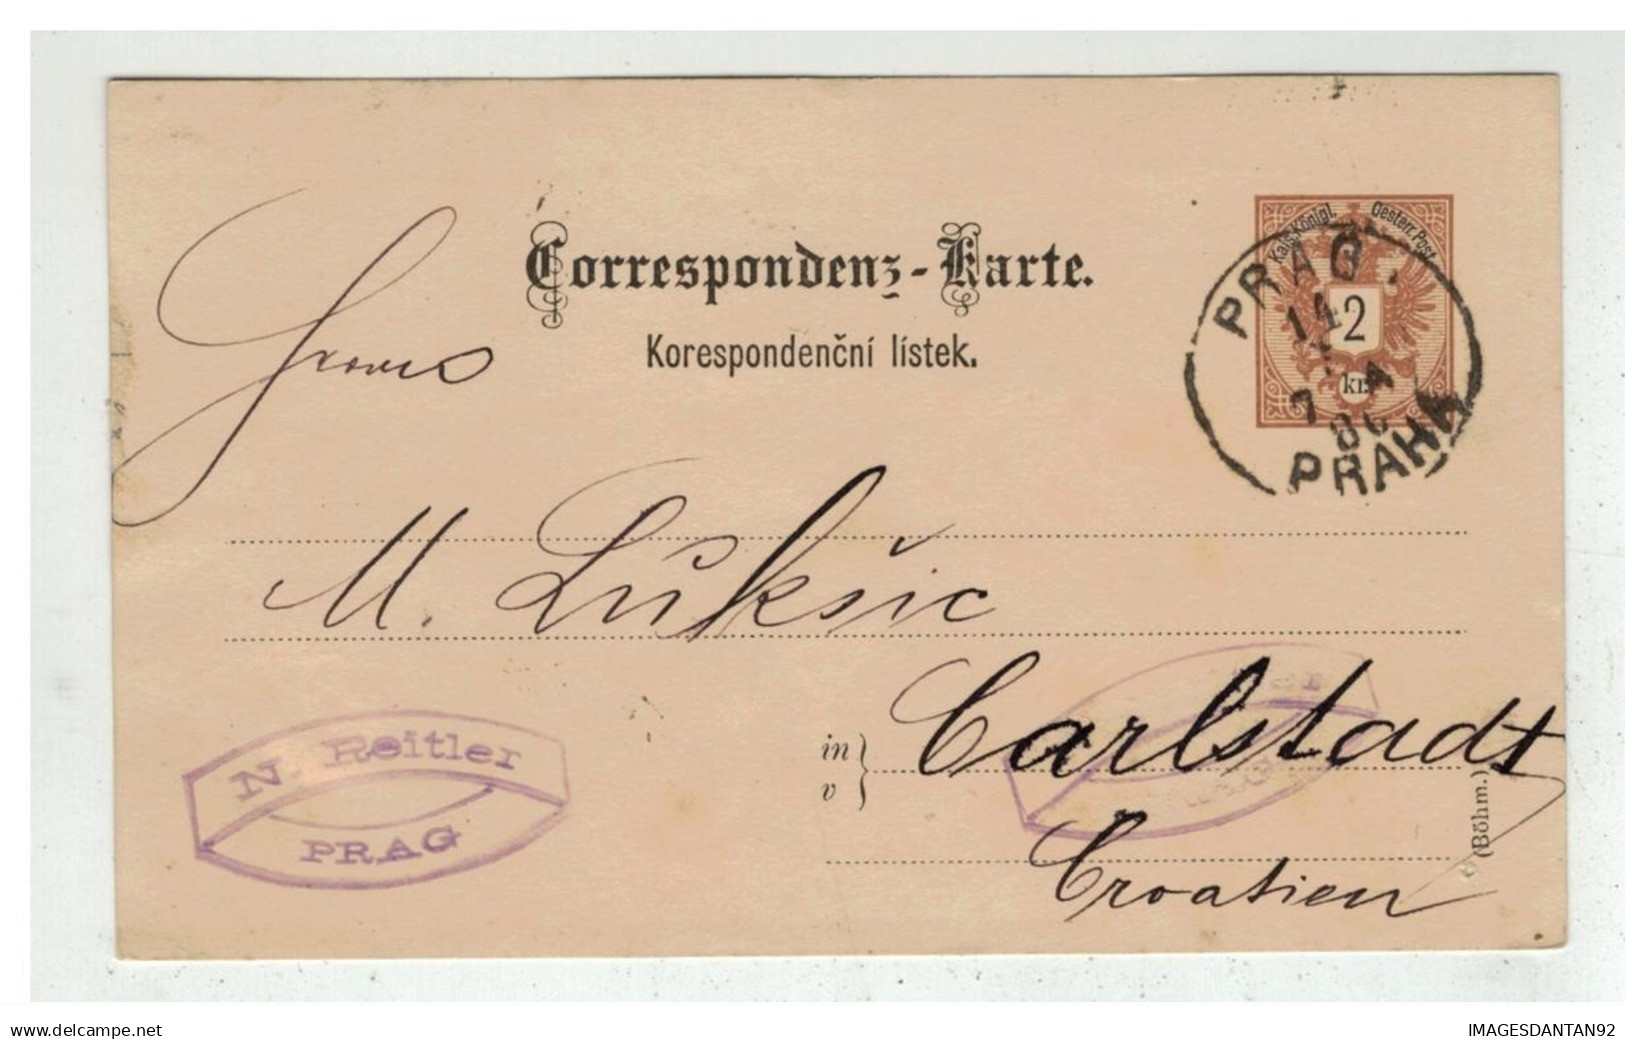 Kais. Königl. Oesterr. Post
2
kr.
PRAG
14
7 A
86
PRAHA
Correspondenz-Karte.
Korespondenční lístek.
M. Lukšic
in
v
Carlstadt
Croatien
(Böhm.)
N. Reitler
PRAG
www.delcampe.net
IMAGESDANTAN92